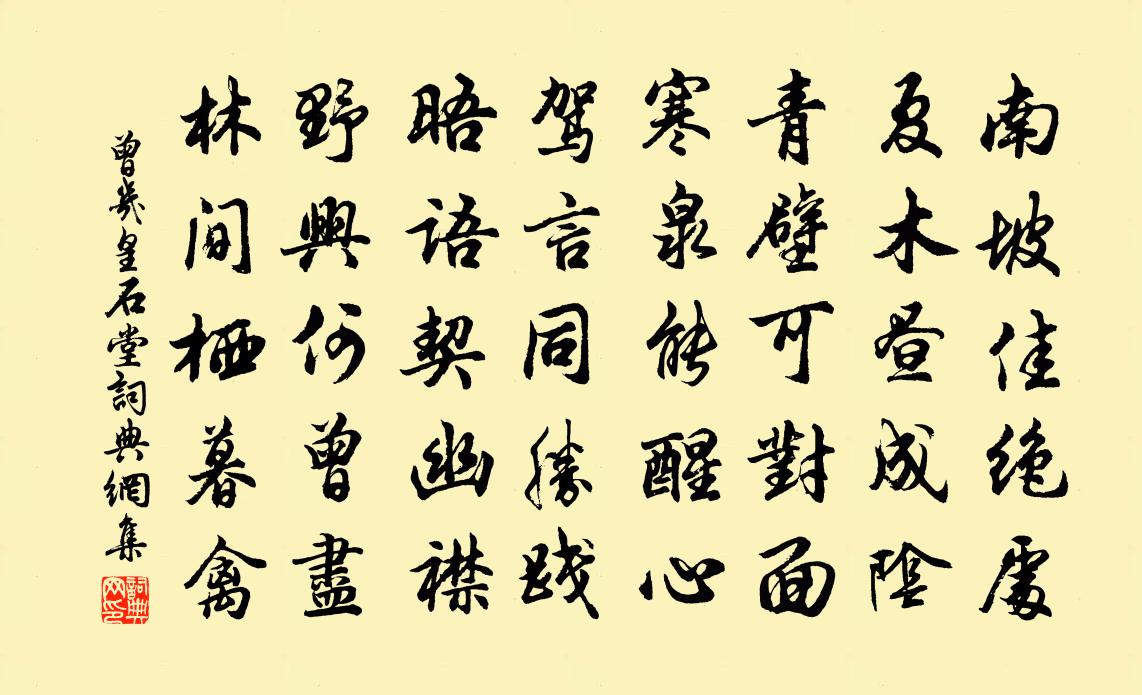 南坡佳絶處
夏木晝成陰
青壁可對面
寒泉能醒心
駕言同勝踐
晤語契幽襟
野興何曾盡
林間栖暮禽
曾幾皇石堂詞典網集
詞典網印